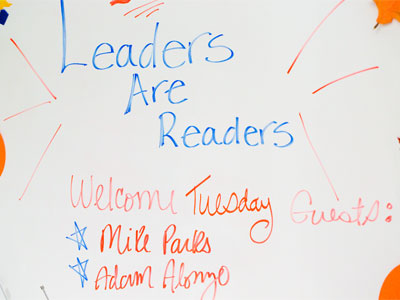 Leaders
Are
Readers
Welcome Tuesday Guests:
Mike Parks
Adam Alonzo